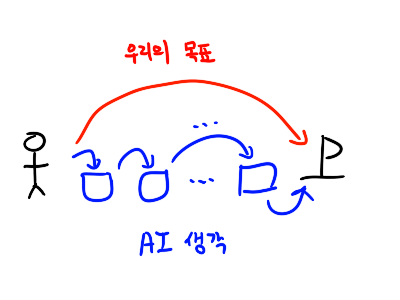 우리의 목표
...
...
AI 생각